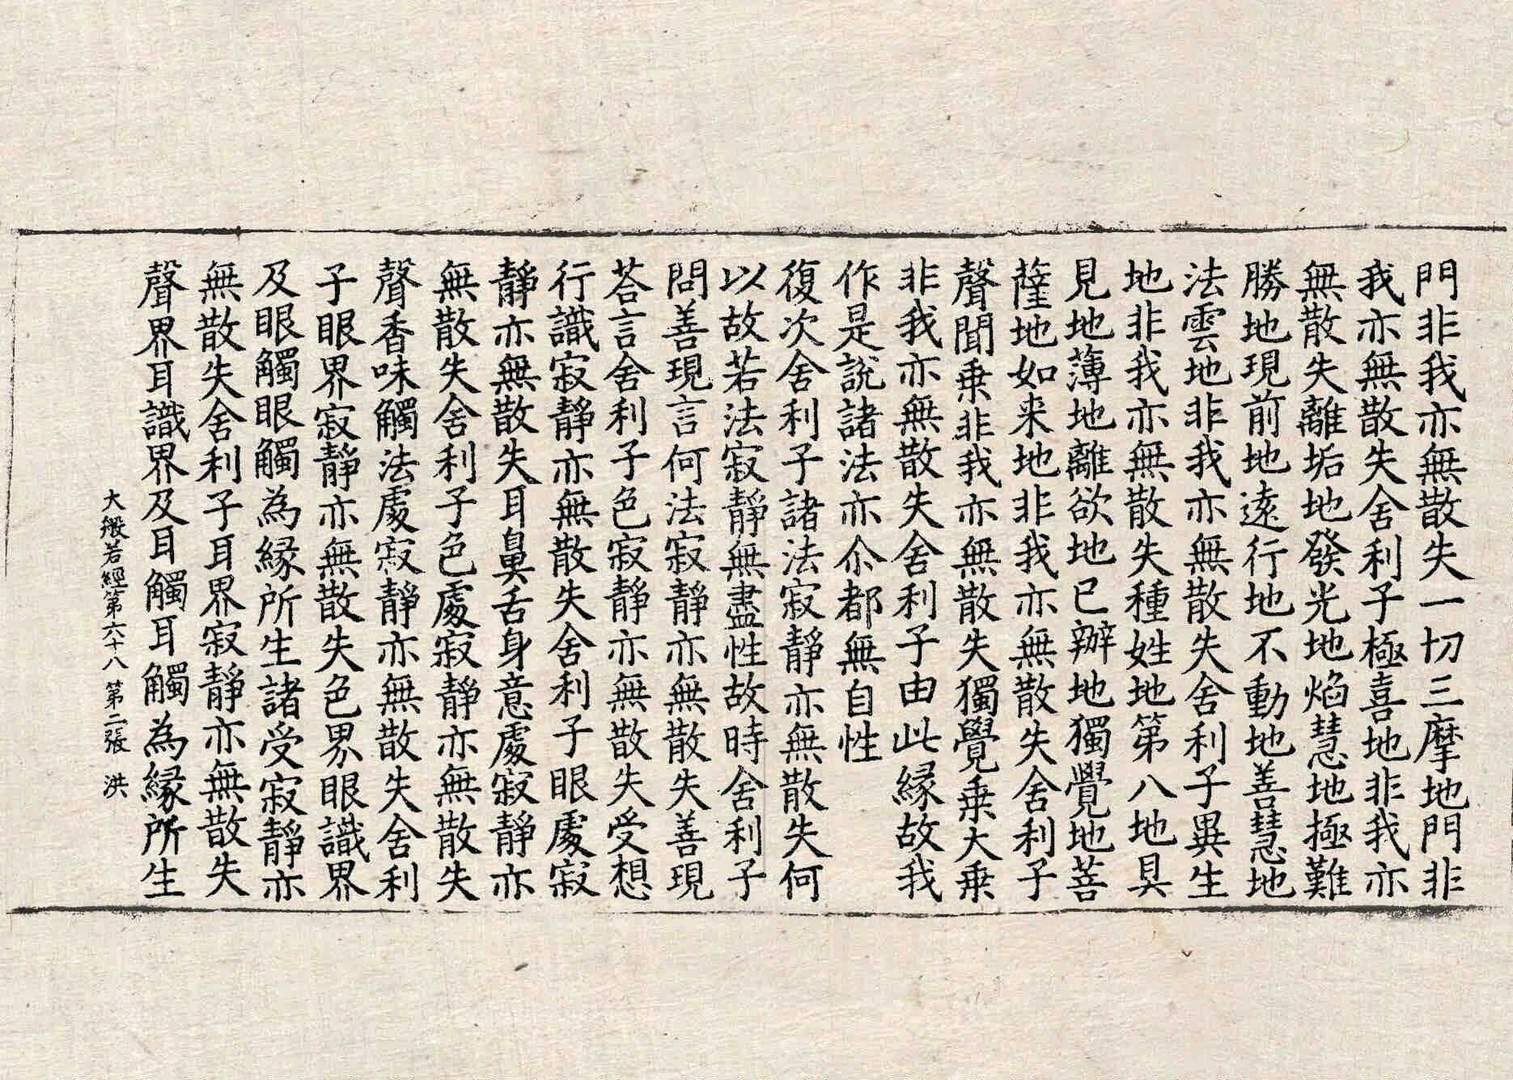 門非我亦無散失一切三摩地門非
我亦無散失舍利子極喜地非我亦
無散失離垢地發光地焰慧地極難
勝地現前地遠行地不動地善慧地
法雲地非我亦無散失舍利子異生
地非我亦無散失種姓地第八地具
見地薄地離欲地已辦地獨覺地菩
薩地如来地非我亦無散失舍利子
聲聞乗非我亦無散失獨覺乗大乗
非我亦無散失舍利子由此縁故我
作是說諸法亦尒都無自性
復次舍利子諸法寂靜亦無散失何
以故若法寂靜無盡性故時舍利子
問善現言何法寂靜亦無散失善現
荅言舍利子色寂靜亦無散失受想
行識寂靜亦無散失舍利子眼處寂
靜亦無散失耳鼻舌身意處寂靜亦
無散失舍利子色處寂靜亦無散失
聲香味觸法處寂靜亦無散失舍利
子眼界寂靜亦無散失色界眼識界
及眼觸眼觸為縁所生諸受寂靜亦
無散失舍利子耳界寂靜亦無散失
聲界耳識界及耳觸耳觸為縁所生
大般若經第六十八 第二張 洪